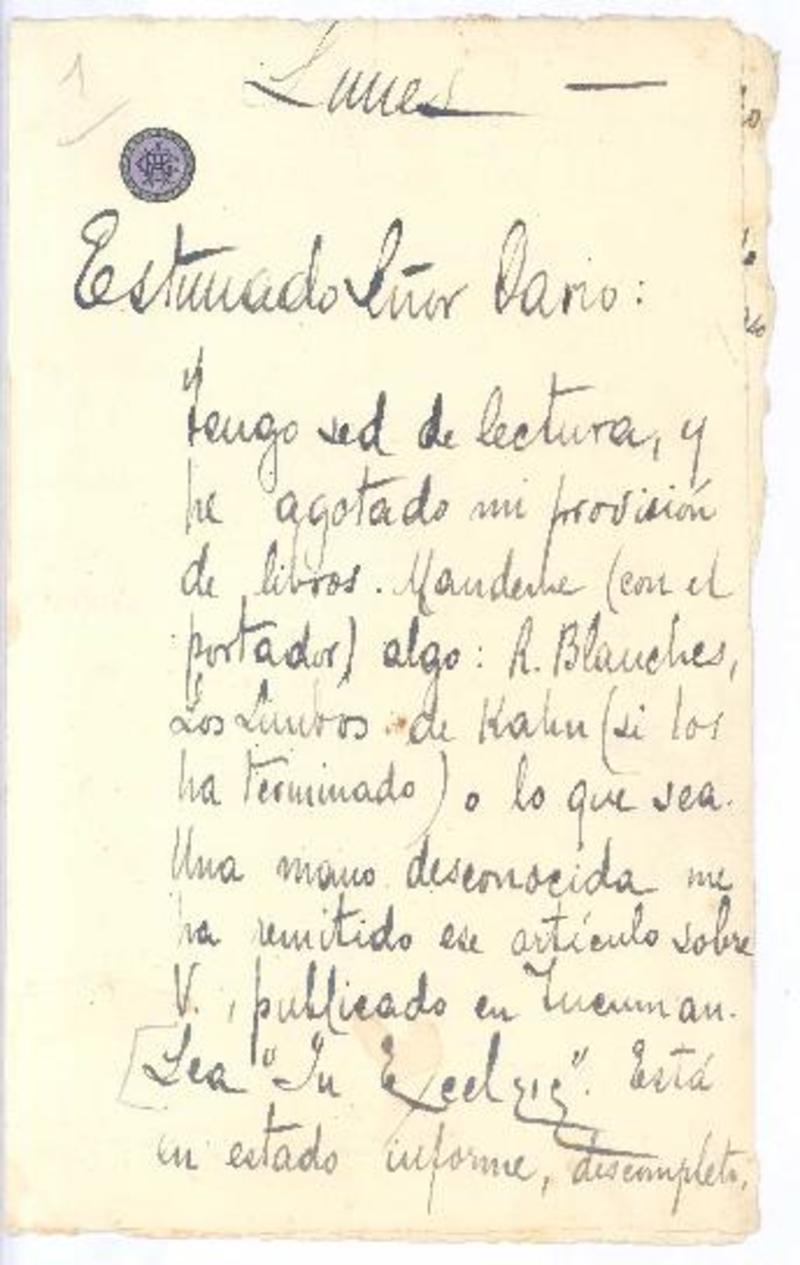 1
Lunes —
Estimado Señor Dario:
Tengo sed de lectura, y
he agotado mi provisión
de libros. Mandeme (con el
portador) algo: R. Blanches,
Los Limbos de Kahn (si los
ha terminado) o lo que sea.
Una mano desconocida me
ha remitido ese artículo sobre
V., publicado en Tucuman.
[Lea "In Excelsis". Está
en estado informe, descompleto,